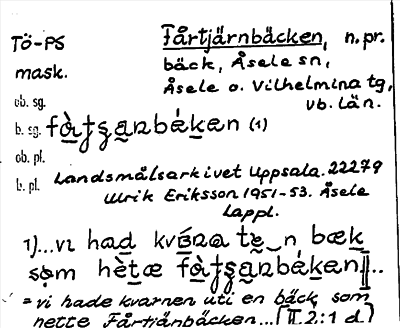 Tö-PS Fårtjärnbäcken, n.pr.
mask. bäck, Åsele sn,
Åsele o. Vilhelmina tg,
ob. sg. vb. län.
b. sg. fɑ̀ʈʂa̱nbǽḵen (1)
ob. pl.
b. pl. Landsmålsarkivet Uppsala. 22279
Ulrik Eriksson 1951-53. Åsele
Lappl.
1)...vi had bæk
som
= vi hade kvarnen uti en bäck som
hette Fårtjänbäcken...(II 2:1 d)